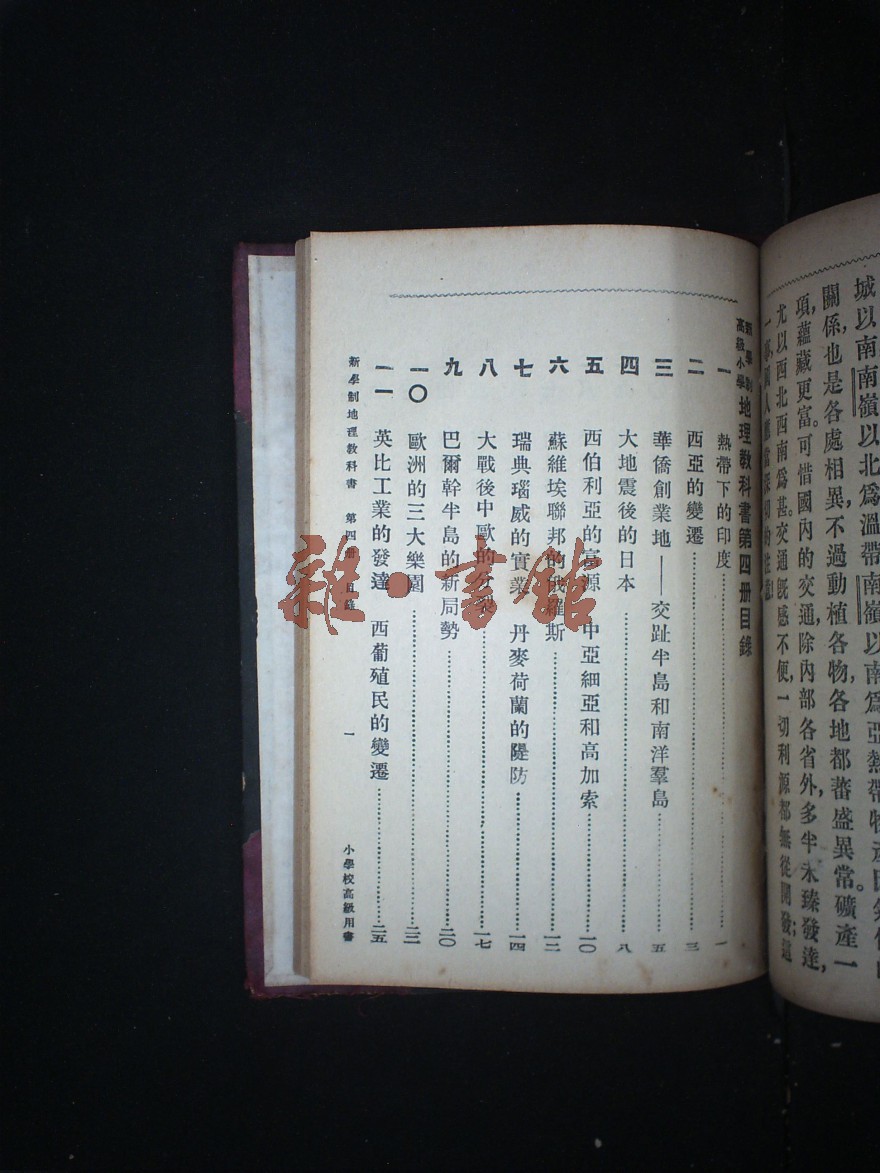 城以南南嶺以北爲溫帶南嶺以南爲亞熱帶物產
關係也是各處相異不過動植各物各地都蕃盛異常。礦產一
項,蘊藏更富。可惜國內的交通除內部各省外,多半未臻發達,
尤以西北西南爲甚。交通旣感不便,一切利源都無從開發;這
新學制高級小學地理教科書第四冊目錄
一 熱帶下的印度 一
二 西亞的變遷 三
三 華僑創業地——交趾半島和南洋羣島 五
四 大地震後的日本 八
五 西伯利亞的富源 中亞細亞和高加索 一〇
六 蘇維埃聯邦的俄羅斯 一二
七 瑞典瑙威的實業 丹麥荷蘭的隄防 一四
八 大戰後中歐的分裂 一七
九 巴爾幹半島的新局勢 二〇
一〇 歐洲的三大樂園 二三
一一 英比工業的發達 西葡殖民的變遷 二五
新學制地理教科書 第四冊 目錄 一 小學校高級用書
雜·書館